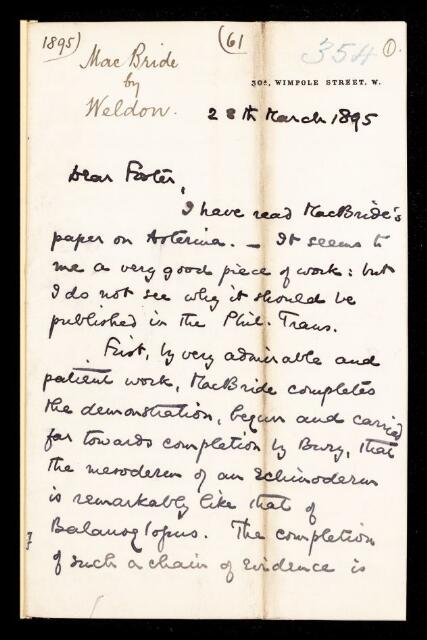 1895) (61 354 1.
MacBride
by
Weldon.
30A, WIMPOLE STREET, W.
28th March 1895
Dear Foster,
I have read MacBride's
paper on Asterina. — It seems to
me a very good piece of work: but
I do not see why it should be
published in the Phil. Trans.
First, by very admirable and
patient work, MacBride completes
the demonstration, begun and carried
far towards completion by Bury, that
the mesoderm of an Echinoderm
is remarkably like that of
Balanoglossus. The completion
of such a chain of evidence is